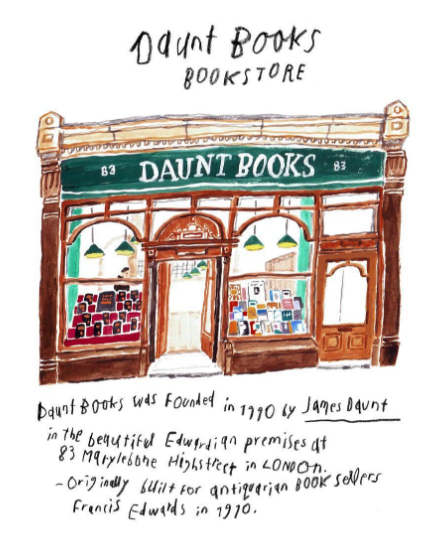 Daunt Books
BOOKSTORE
83 DAUNT BOOKS 83
Daunt Books was founded in 1990 by James Daunt
in the beautiful Edwardian premises at
83 Marylebone Highstreet in LONDON.
- Originally built for antiquarian BOOK sellers
Francis Edwards in 1910.